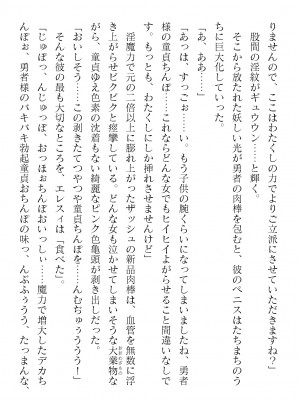 りませんので、ここはわたくしの力でより立派にさせていただきますね？」
股間の淫紋がギュウウン……と輝く。
そこから放たれた妖しい光が勇者の肉棒を包むと、彼のペニスはたちまちのう
ちに巨大化していく。
「あ、ああ……」
「あっは、すっごぉ……い。もう子供の腕くらいになってしまいましたね、勇者
様の童貞ちんぽ……これならどんな女でもヒイヒイよがらせること間違いなしで
す。もっとも、わたくしにしか挿れさせませんけど」
淫魔力で元の二倍以上に膨れ上がったザッシュの新品肉棒は、血管を無数に浮
き上がらせビクビクと痙攣している。どんな女も泣かせてしまいそうな大業物な
がら、童貞ゆえ色素の沈着もない綺麗なピンク色亀頭が剥き出しだった。
「おいしそう……この剥きたてつやつや童貞ちんぽを……んむちゅううう！」
そんな彼の最も大切なところを、エレスイは「食べた」。
「じゅぽっ、んじゅっぽ、おっほぉちんぽおいっしぃ……魔力で増大したデカち
んぽぉ、勇者様のバキバキ勃起童貞おちんぽの味っ、んぶふぅうう、たっまんな、